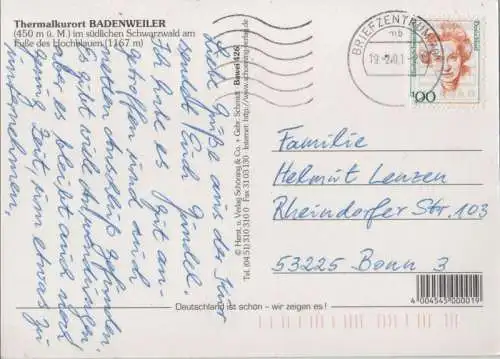 Thermalkurort BADENWEILER
(450 m ü. M.) im südlichen Schwarzwald am
Fuße des Hochblauen (1167 m)
Liebe Grüße aus der Kur
sendet Euch Gundel.
Ich habe es gut an-
getroffen und auch
netten Anschluß gefunden.
Es gibt viele Anwendungen,
aber es bleibt auch noch
genug Zeit, um etwas zu
unternehmen.
© Herst. u. Verlag Schöning & Co. + Gebr. Schmidt
Bawei 426
Tel. (04 51) 310 31 0 Fax 31 03 130 Internet: http://www.schoening-verlag.de
BRIEFZENTRUM
mb
19.-2.01
100
Familie
Helmut Lenzen
Rheindorfer Str. 103
53225 Bonn 3
4 004545 000019
Deutschland ist schön - wir zeigen es!